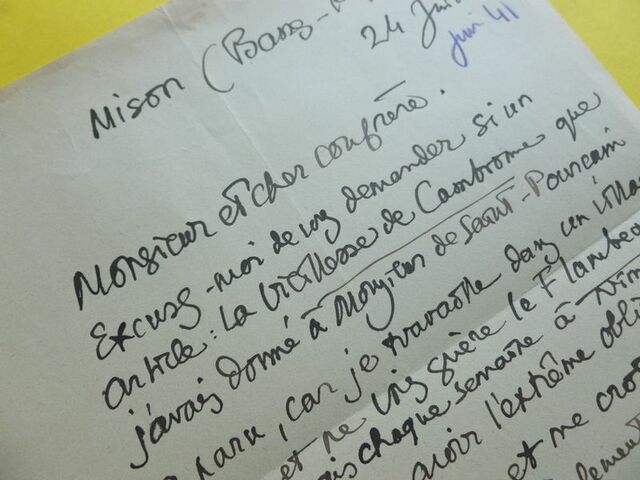 Mison (Bass-
24 Jui
juin 41
Monsieur et cher confrère.
Excusez-moi de vous demander si un
article: La Vieillesse de Cambronne que
j'avais donné à Monsieur de Saint-Pourçain
paru, car je travaille dans un villa
et ne vois guère le Flambea
chaque semaine à
avoir l'extrême obli
et me cro